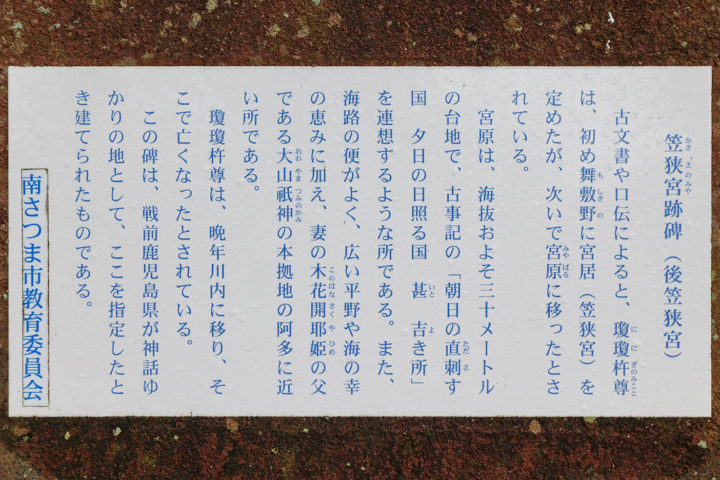 笠狭宮跡碑（後笠狭宮）
古文書や口伝によると、瓊瓊杵尊
は、初め舞敷野に宮居（笠狭宮）を
定めたが、次いで宮原に移ったとさ
れている。
宮原は、海抜およそ三十メートル
の台地で、古事記の「朝日の直刺す
国　夕日の日照る国　甚　吉き所」
を連想するような所である。また、
海路の便がよく、広い平野や海の幸
の恵みに加え、妻の木花開耶姫の父
である大山祇神の本拠地の阿多に近
い所である。
瓊瓊杵尊は、晩年川内に移り、そ
こで亡くなったとされている。
この碑は、戦前鹿児島県が神話ゆ
かりの地として、ここを指定したと
き建てられたものである。
南さつま市教育委員会